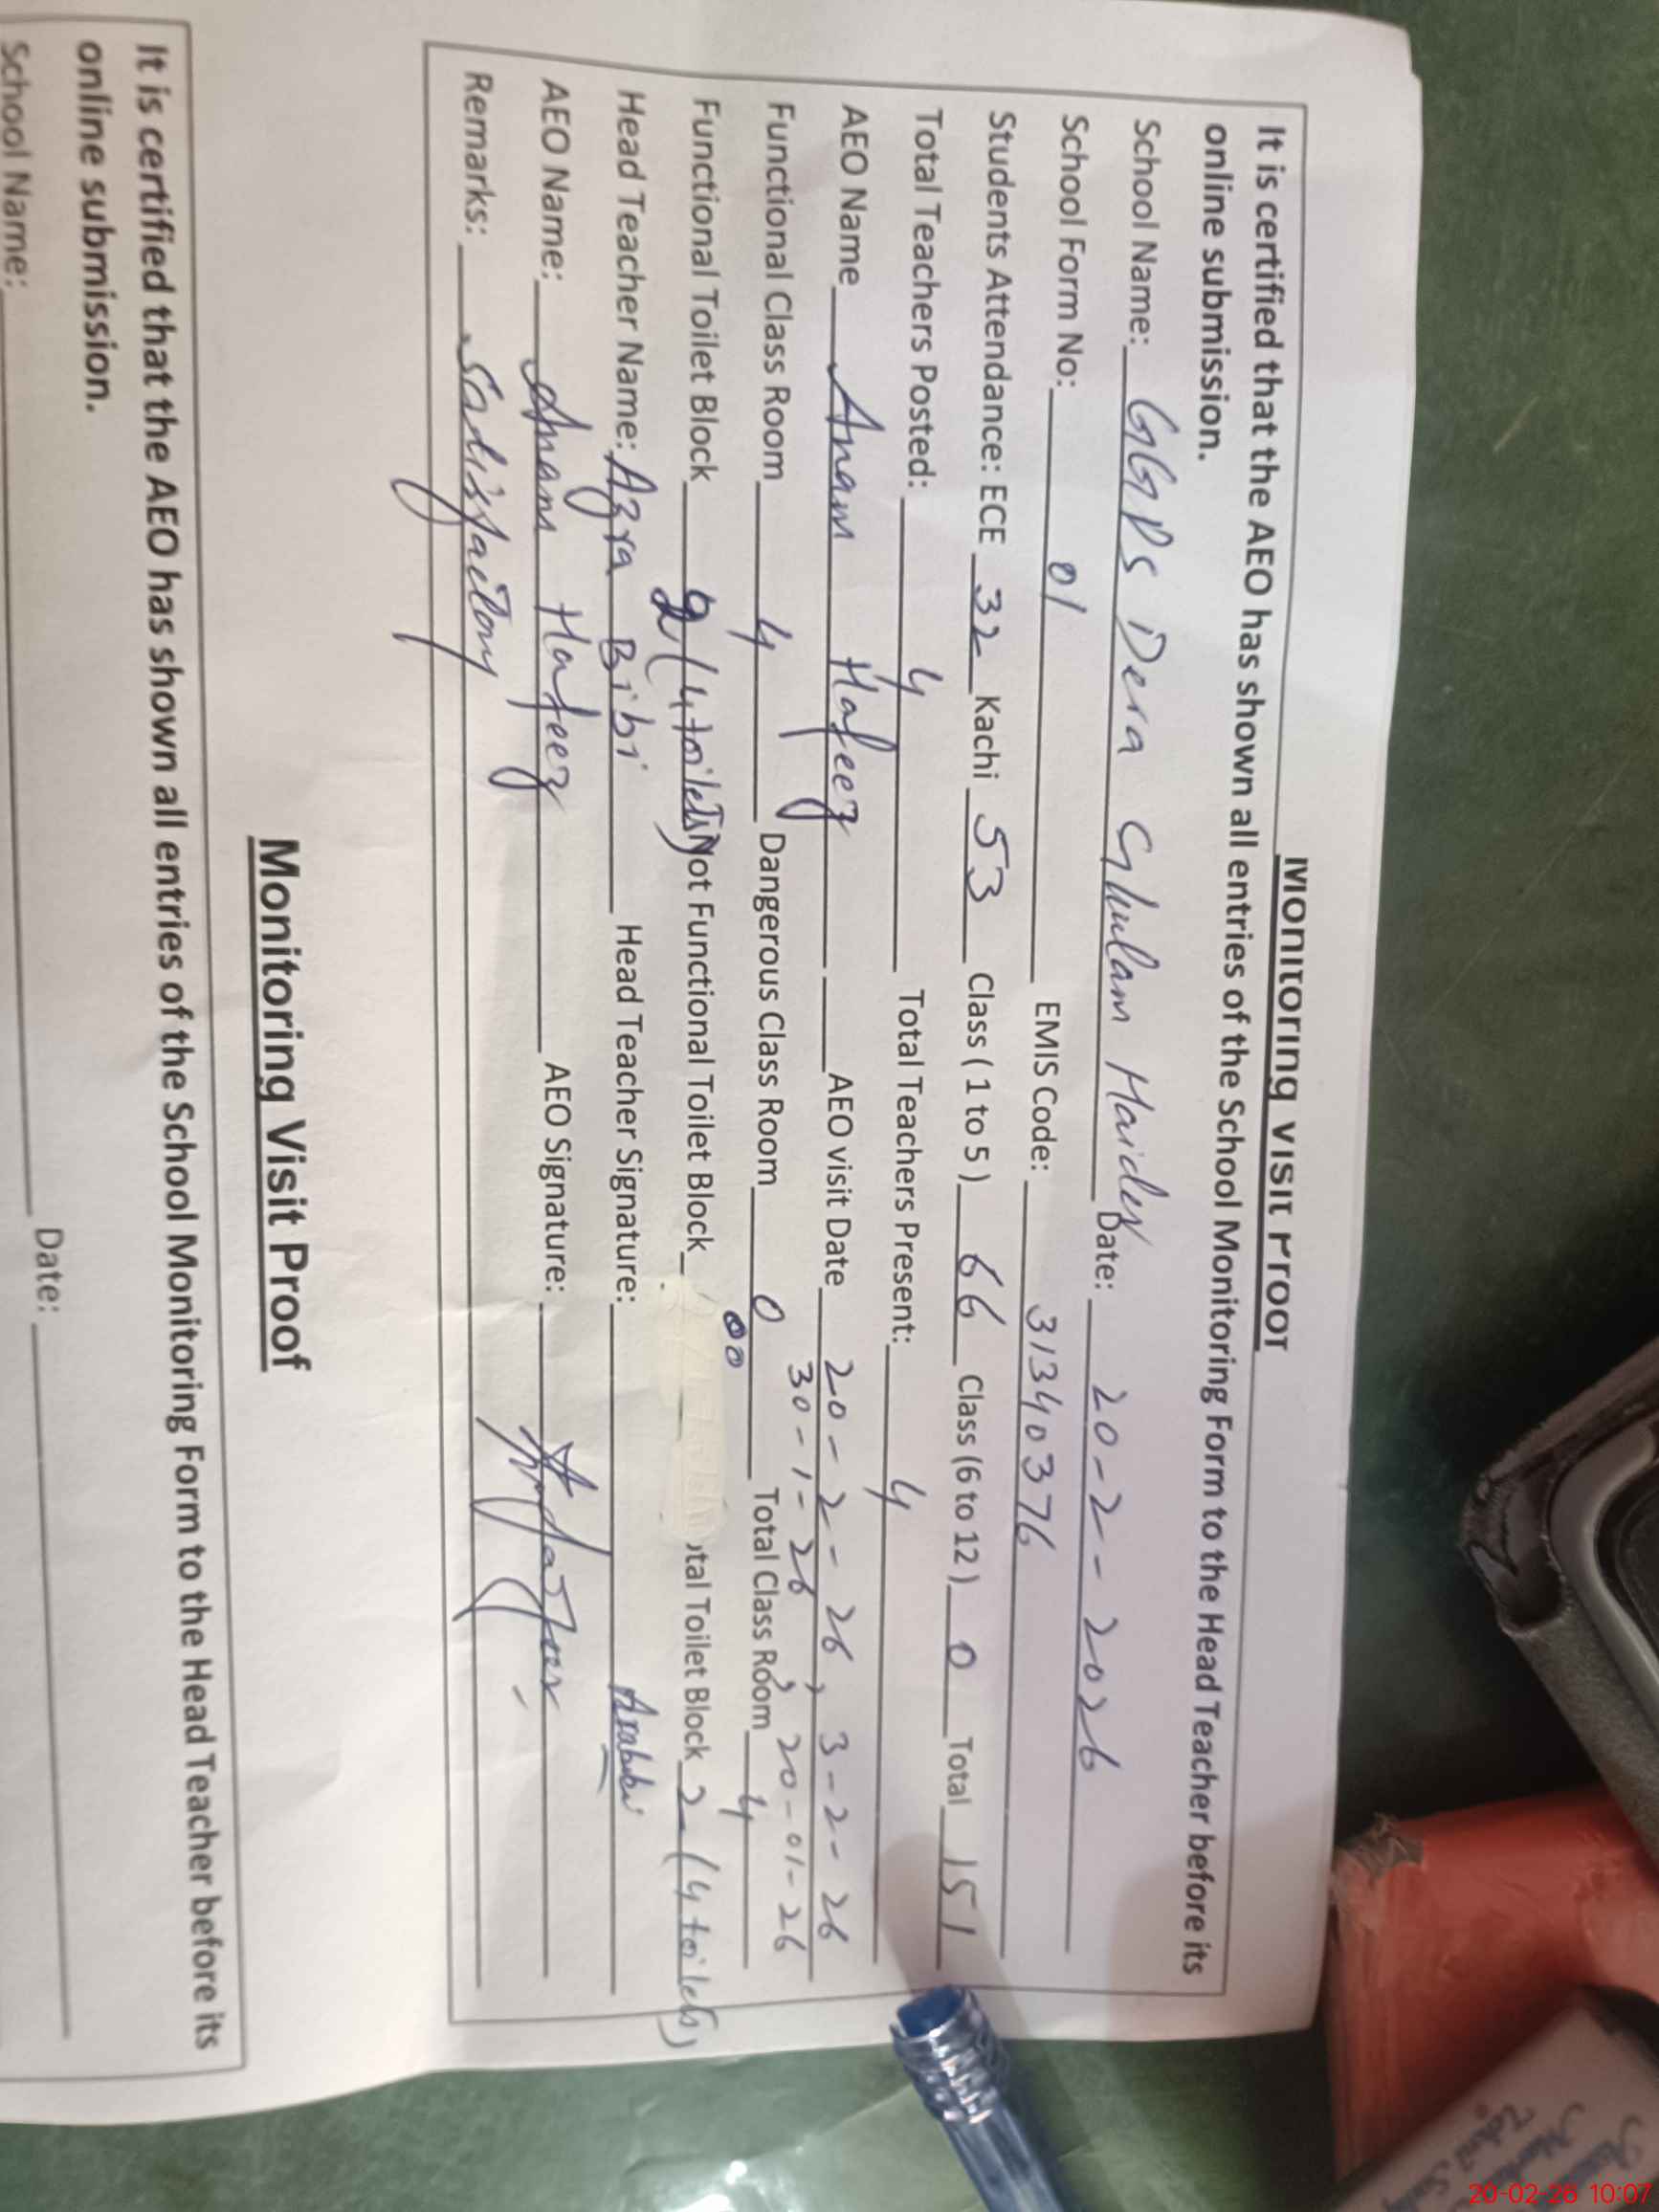 Monitoring Visit Proof
It is certified that the AEO has shown all entries of the School Monitoring Form to the Head Teacher before its
online submission.
School Name: GGPS Dera Ghulam Haider Date: 20-2-2026
School Form No: 01 EMIS Code: 31340376
Students Attendance: ECE 32 Kachi 53 Class ( 1 to 5 ) 66 Class (6 to 12 ) 0 Total 151
Total Teachers Posted: 4 Total Teachers Present: 4
AEO Name Anam Hafeez AEO visit Date 20-2-26, 3-2-26
30-1-26, 20-01-26
Functional Class Room 4 Dangerous Class Room 0 Total Class Room 4
00
Functional Toilet Block 2 (4 toilets) Not Functional Toilet Block otal Toilet Block 2 (4 toilets)
Head Teacher Name: Azra Bibi Head Teacher Signature:
AEO Name: Anam Hafeez AEO Signature:
Remarks: Satisfactory
Monitoring Visit Proof
It is certified that the AEO has shown all entries of the School Monitoring Form to the Head Teacher before its
online submission.
School Name: Date:
20-02-26 10:07